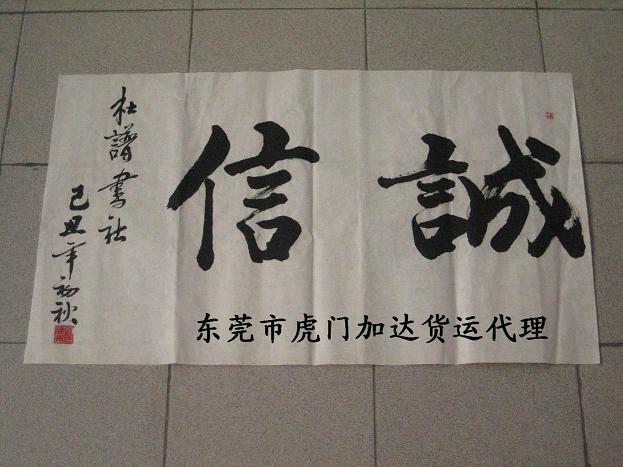 誠信
杜譜書社
己丑年初秋
东莞市虎门加达货运代理